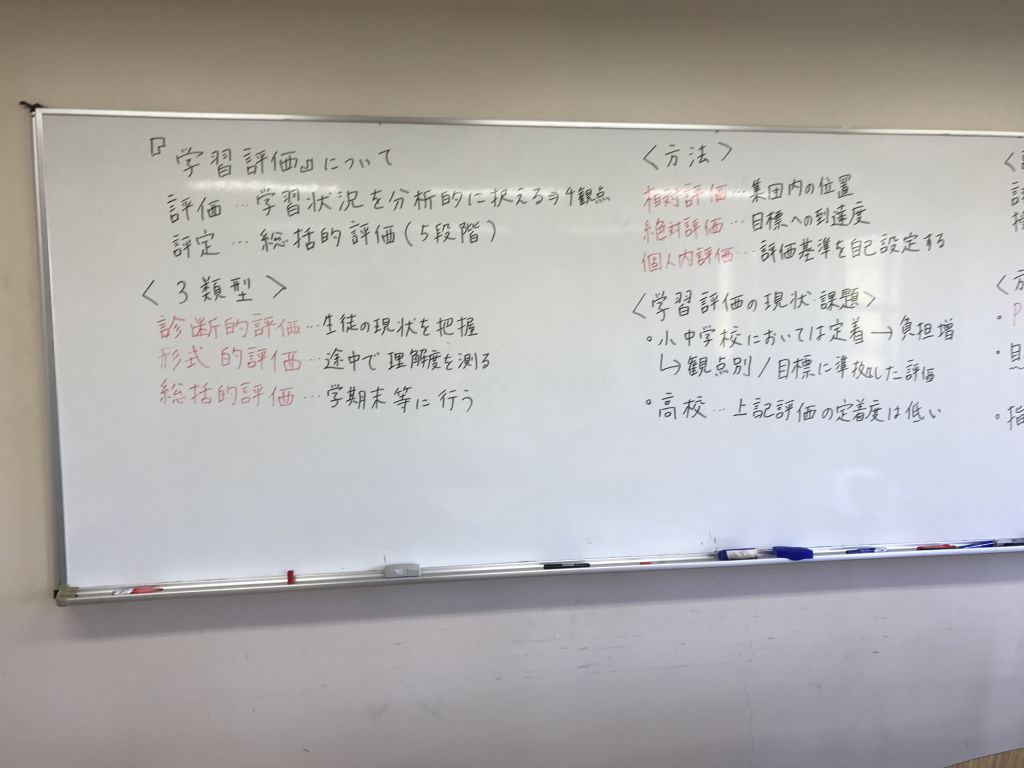 『学習評価』について
評価…学習状況を分析的に捉える⇒4観点
評定…総括的評価(5段階)
〈3類型〉
診断的評価…生徒の現状を把握
形式的評価…途中で理解度を測る
総括的評価…学期末等に行う
〈方法〉
相対評価…集団内の位置
絶対評価…目標への到達度
個人内評価…評価基準を自己設定する
〈学習評価の現状・課題〉
・小中学校においては定着→負担増
↳観点別/目標に準拠した評価
・高校…上記評価の定着度は低い
〈
〈方
・P
・自
・指